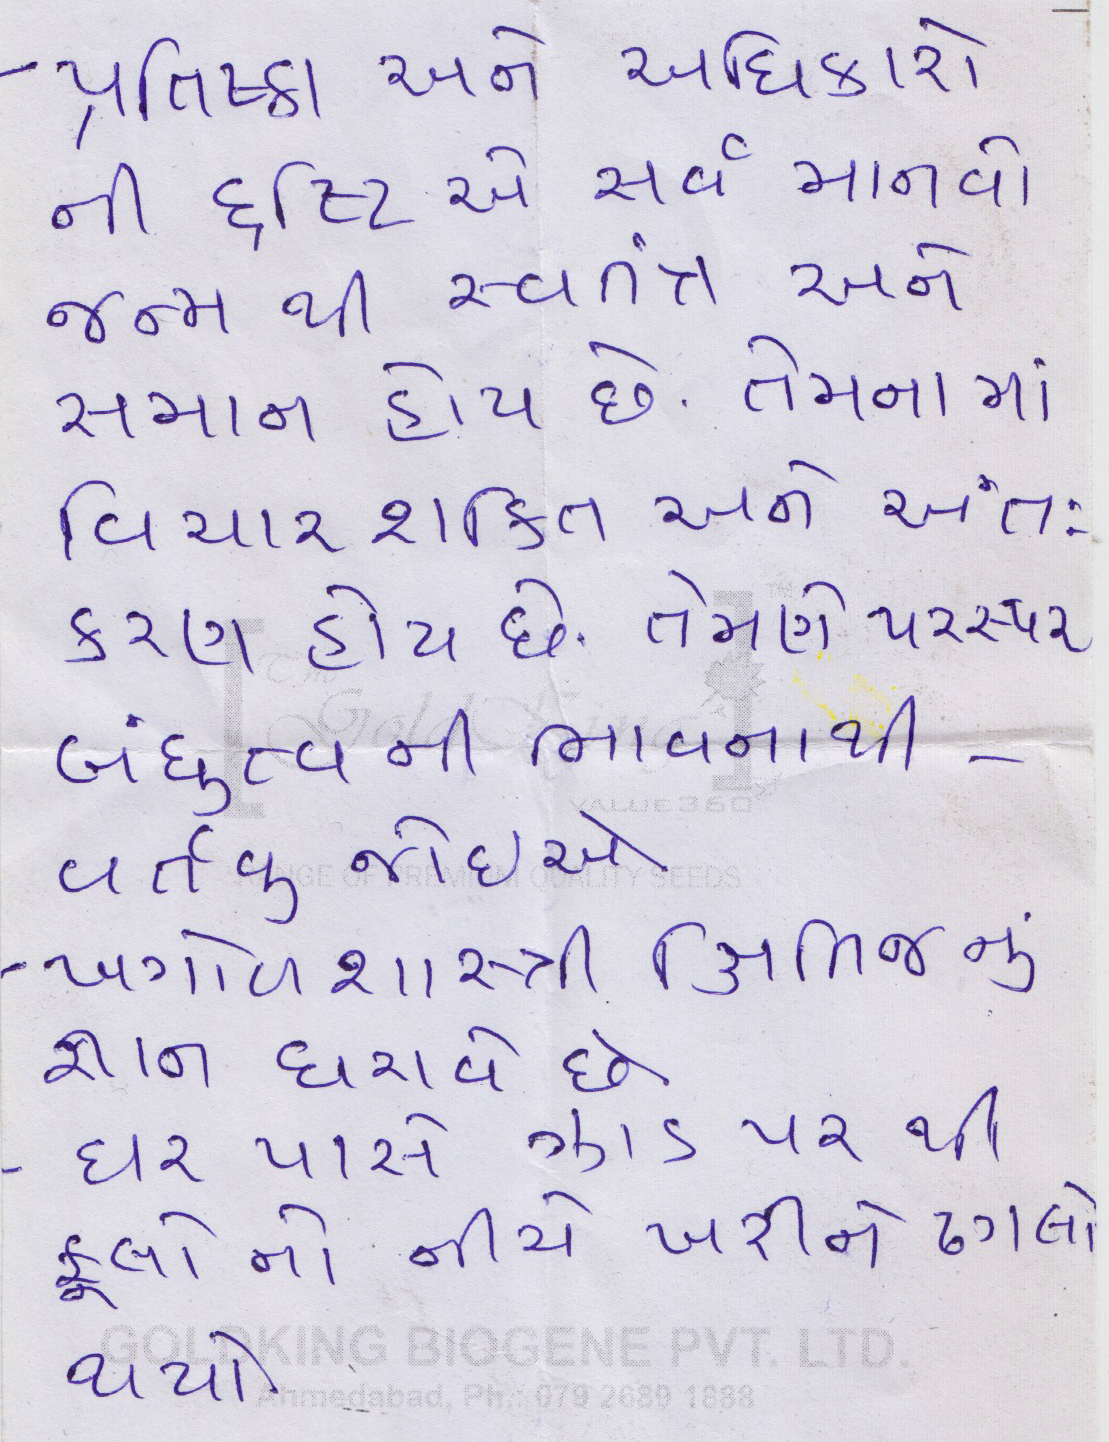 - પ્રતિષ્ઠા અને અધિકારો
ની દ્દષ્ટિ એ સર્વ માનવો
જન્મ થી સ્વતંત્ર અને
સમાન હોય છે. તેમના માં
વિચાર શકિત અને અંતઃ
કરણ હોય છે. તેમણે પરસ્પર
બંધુત્વ ની ભાવના થી -
વર્તવુ જોઇએ
- ખગોળ શાસ્ત્રી ક્ષિતિજ નું
જ્ઞાન ધરાવે છે
- ઘર પાસે ઝાડ પર થી
ફૂલો નો નીચે ખરીને ઢગલો
થયો.
Gold King
VALUE 360°
RANGE OF PREMIUM QUALITY SEEDS
GOLDKING BIOGENE PVT. LTD.
Ahmedabad, Ph.: 079 2689 1888